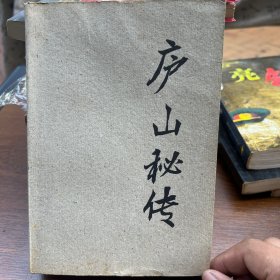 庐山秘传